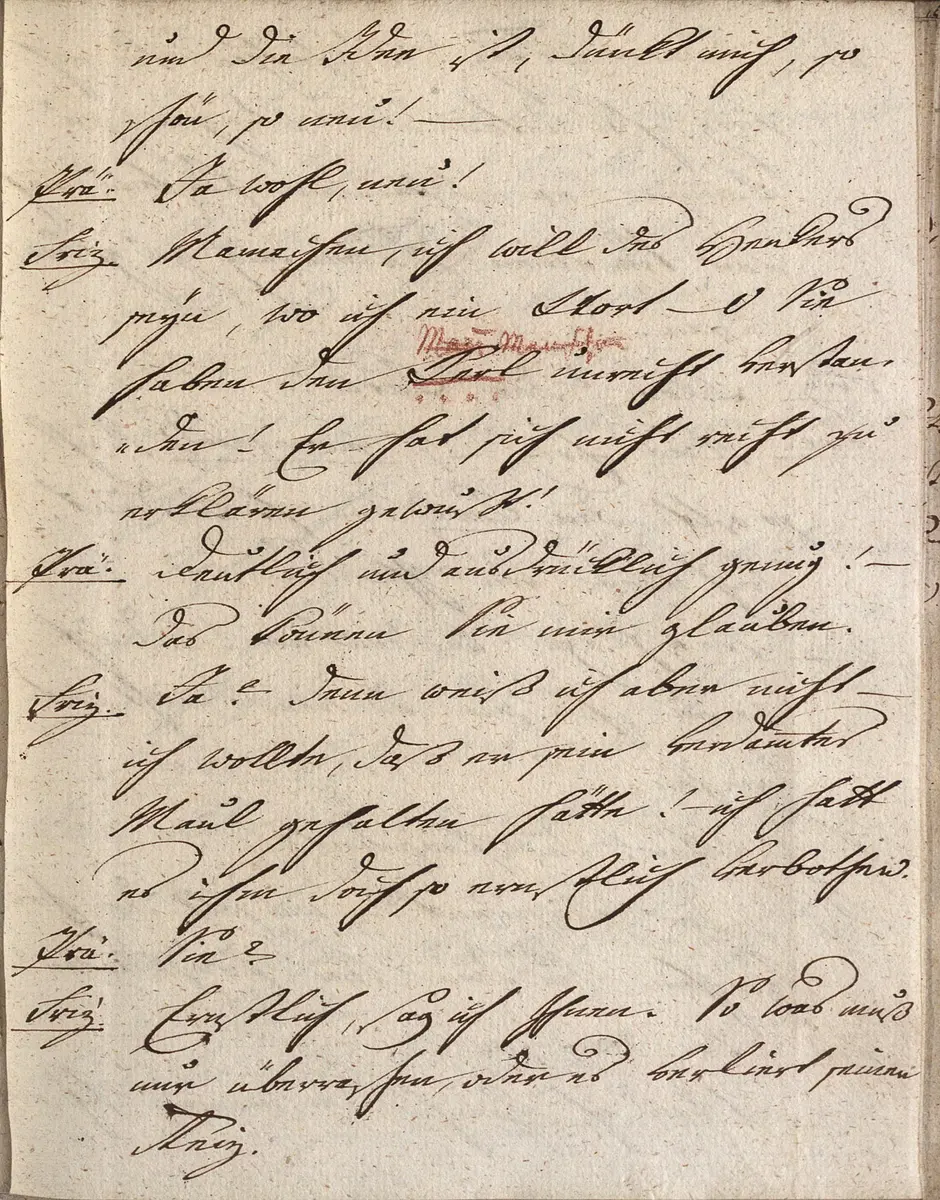 und die Idee ist, dünkt mich, so
schön, so neu! —
Prä. Ja wohl, neu!
Friz. Mamachen, ich will des Henkers
seyn, wo ich ein Wort — O Sie
Menschen
haben den Kerl unrecht verstan-
-den! Er hat sich nicht recht zu
erklären gewußt!
Prä. Deutlich und ausdrücklich genug! —
das können Sie mir glauben.
Friz. Ja? denn weiß ich aber nicht —
ich wollte, daß er sein verdamtes
Maul gehalten hätte! — ich hatt
es ihm doch so ernstlich verbothen.
Prä. Sie?
Friz. Ernstlich, sag ich Ihnen. So was muß
nur überraschen, oder es verliert seinen
Reiz.